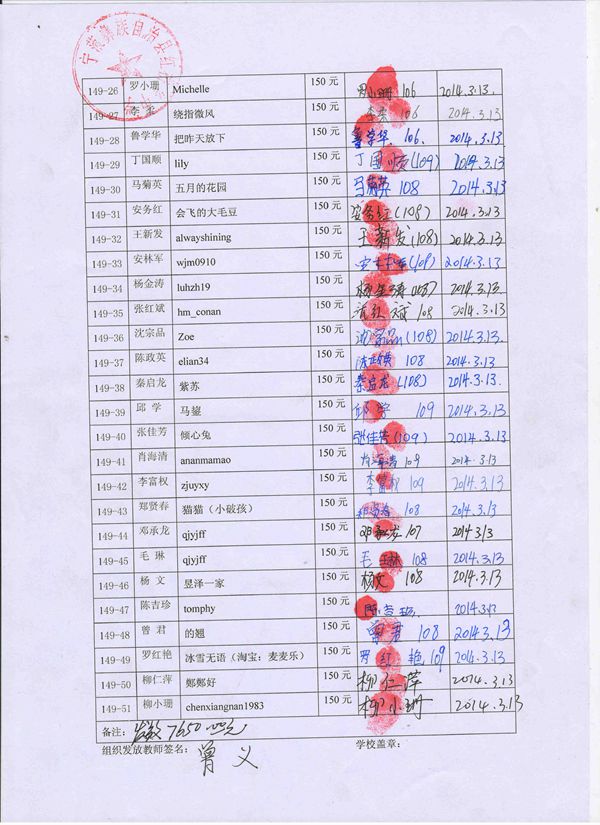 宁蒗彝族自治县红
149-26 罗小珊 Michelle 150 元 罗小珊 106 2014.3.13.
149-27 李 绕指微风 150 元 106 2014.3.13
149-28 鲁学华 把昨天放下 150 元 鲁学华 106. 2014.3.13
149-29 丁国顺 lily 150 元 丁国顺(109) 2014.3.13
149-30 马菊英 五月的花园 150 元 马菊英 108 2014.3.13
149-31 安务红 会飞的大毛豆 150 元 安务红(108) 2014.3.13
149-32 王新发 alwayshining 150 元 王新发(108) 2014.3.13
149-33 安林军 wjm0910 150 元 2014.3.13
149-34 杨金涛 luhzh19 150 元 杨金涛 2014.3.13
149-35 张红斌 hm_conan 150 元 108 2014.3.13
149-36 沈宗品 Zoe 150 元 沈宗品(108) 2014.3.13
149-37 陈政英 elian34 150 元 陈政英 108 2014.3.13
149-38 秦启龙 紫苏 150 元 秦启龙(108) 2014.3.13.
149-39 邱 学 马鋆 150 元 邱学 109 2014.3.13
149-40 张佳芳 倾心兔 150 元 张佳芳(109) 2014.3.13
149-41 肖海清 ananmamao 150 元 肖海清 109 2014.3.13
149-42 李富权 zjuyxy 150 元 李富权 109 2014.3.13
149-43 郑贤春 猫猫（小破孩） 150 元 郑贤春 108 2014.3.13
149-44 邓承龙 qjyjff 150 元 邓承龙 107 2014.3.13
149-45 毛 琳 qjyjff 150 元 毛琳 108 2014.3.13
149-46 杨 文 昱泽一家 150 元 杨文 108 2014.3.13
149-47 陈吉珍 tomphy 150 元 2014.3.13
149-48 曾 君 的翘 150 元 曾君 108 2014.3.13
149-49 罗红艳 冰雪无语（淘宝：麦麦乐） 150 元 罗红艳 109 2014.3.13
149-50 柳仁萍 郑郑好 150 元 柳仁萍 2014.3.13
149-51 柳小珊 chenxiangnan1983 150 元 柳小珊 2014.3.13
备注： 发放 7650.00元
组织发放教师签名： 曾义 学校盖章：